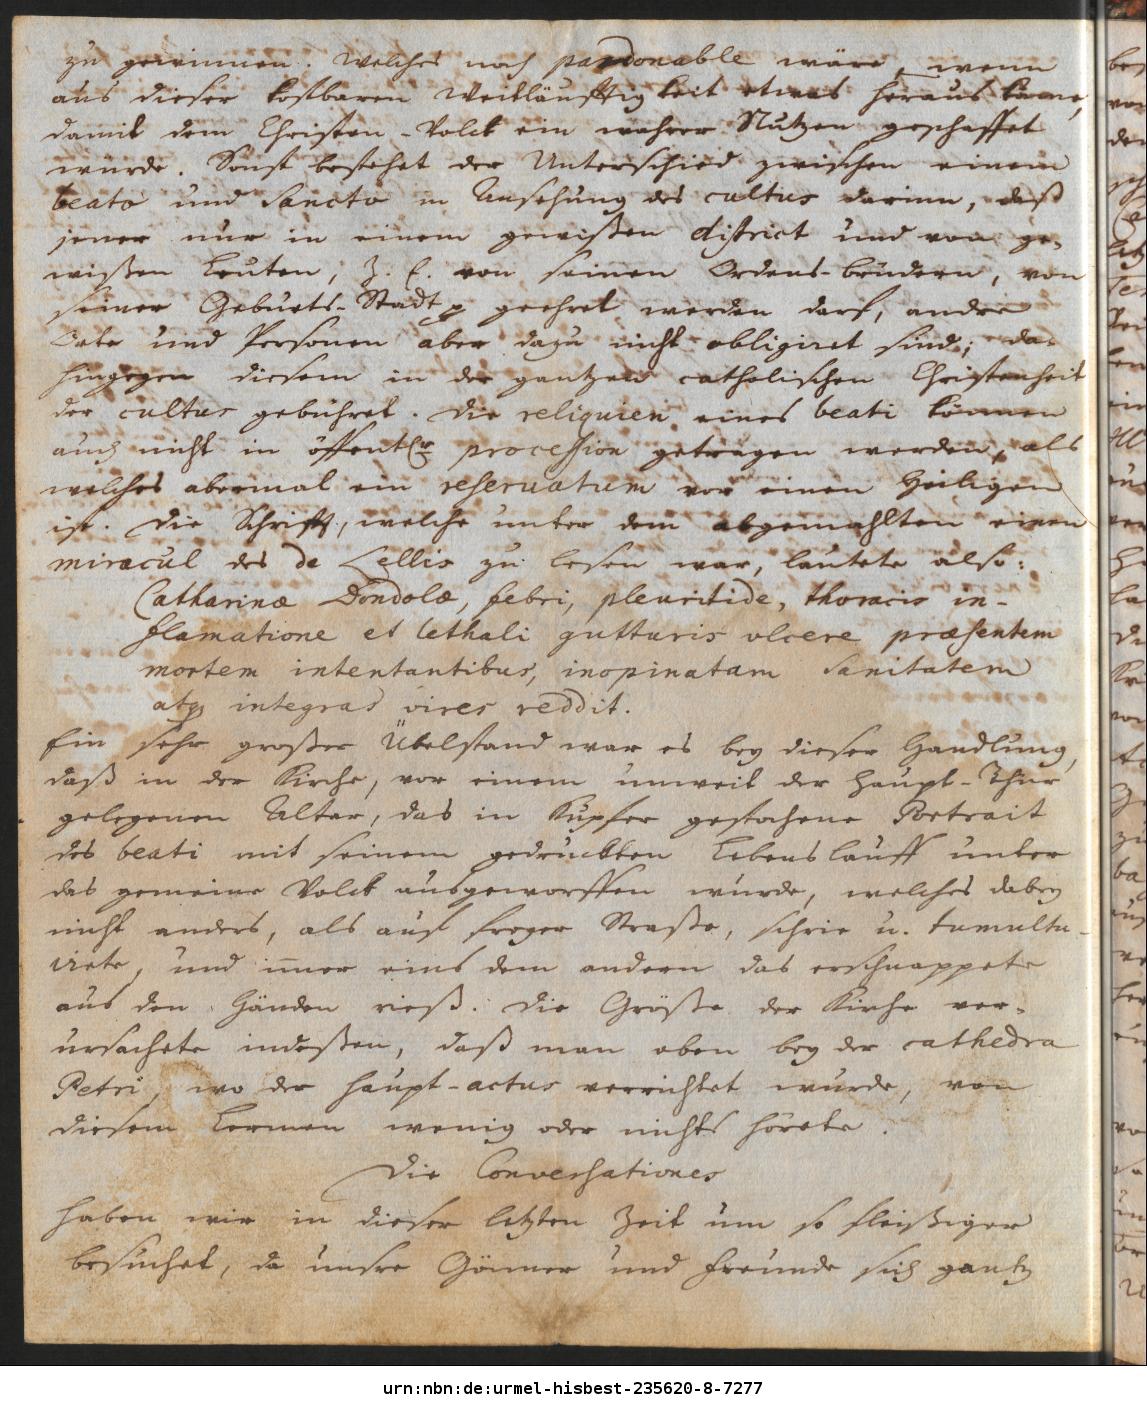 zu gewinnen. Welches noch pardonable wäre, wenn
aus dieser kostbaren Weitläufftigkeit etwas heraus käme,
damit dem Christen-Volck ein wahrer Nutzen geschaffet
würde. Sonst bestehet der Unterschied zwischen einem
beato und Sancto in Ansehung des cultus darinn, daß
jener nur in einem gewißen district und von ge-
wißen Leuten, Z. E. von seinen Ordens-brüdern, von
seiner Geburts-Stadt geehret werden darf, andre
Orte und Personen aber dazu nicht obligiret sind; da
hingegen diesem in der gantzen catholischen Christenheit
der cultus gebühret. Die reliquien eines beati können
auch nicht in öffentlr procession getragen werden, als
welches abermal ein reservatum vor einen Heiligen
ist. Die Schrifft, welche unter dem abgemahlten einen
miracul des de Lellis zu lesen war, lautete also:
Catharinæ Dondolæ, febri, pleuritide, thoracis in-
flamatione et lethali gutturis vlcere præsentem
mortem intentantibus, inopinatam Sanitatem
atq integras vires reddit.
Ein sehr großer Übelstand war es bey dieser Handlung,
daß in der Kirche, vor einem unweit der Haupt-Thür
gelegenen Altar, das in Kupfer gestochene Portrait
des beati mit seinem gedruckten Lebenslauff unter
das gemeine Volck ausgeworffen wurde, welches dabey
nicht anders, als auf freyer Straße, schrie u. tumultu-
irete, und im̅er eins dem andern das erschnappete
aus den Händen rieß. Die Größe der Kirche ver-
ursachete indeßen, daß man oben bey der cathedra
Petri, wo der Haupt-actus verrichtet wurde, von
diesem Lermen wenig oder nichts hörete.
Die Conversationes
haben wir in dieser letzten Zeit um so fleißiger
besuchet, da unsre Gönner und Freunde sich gantz
urn:nbn:de:urmel-hisbest-235620-8-7277